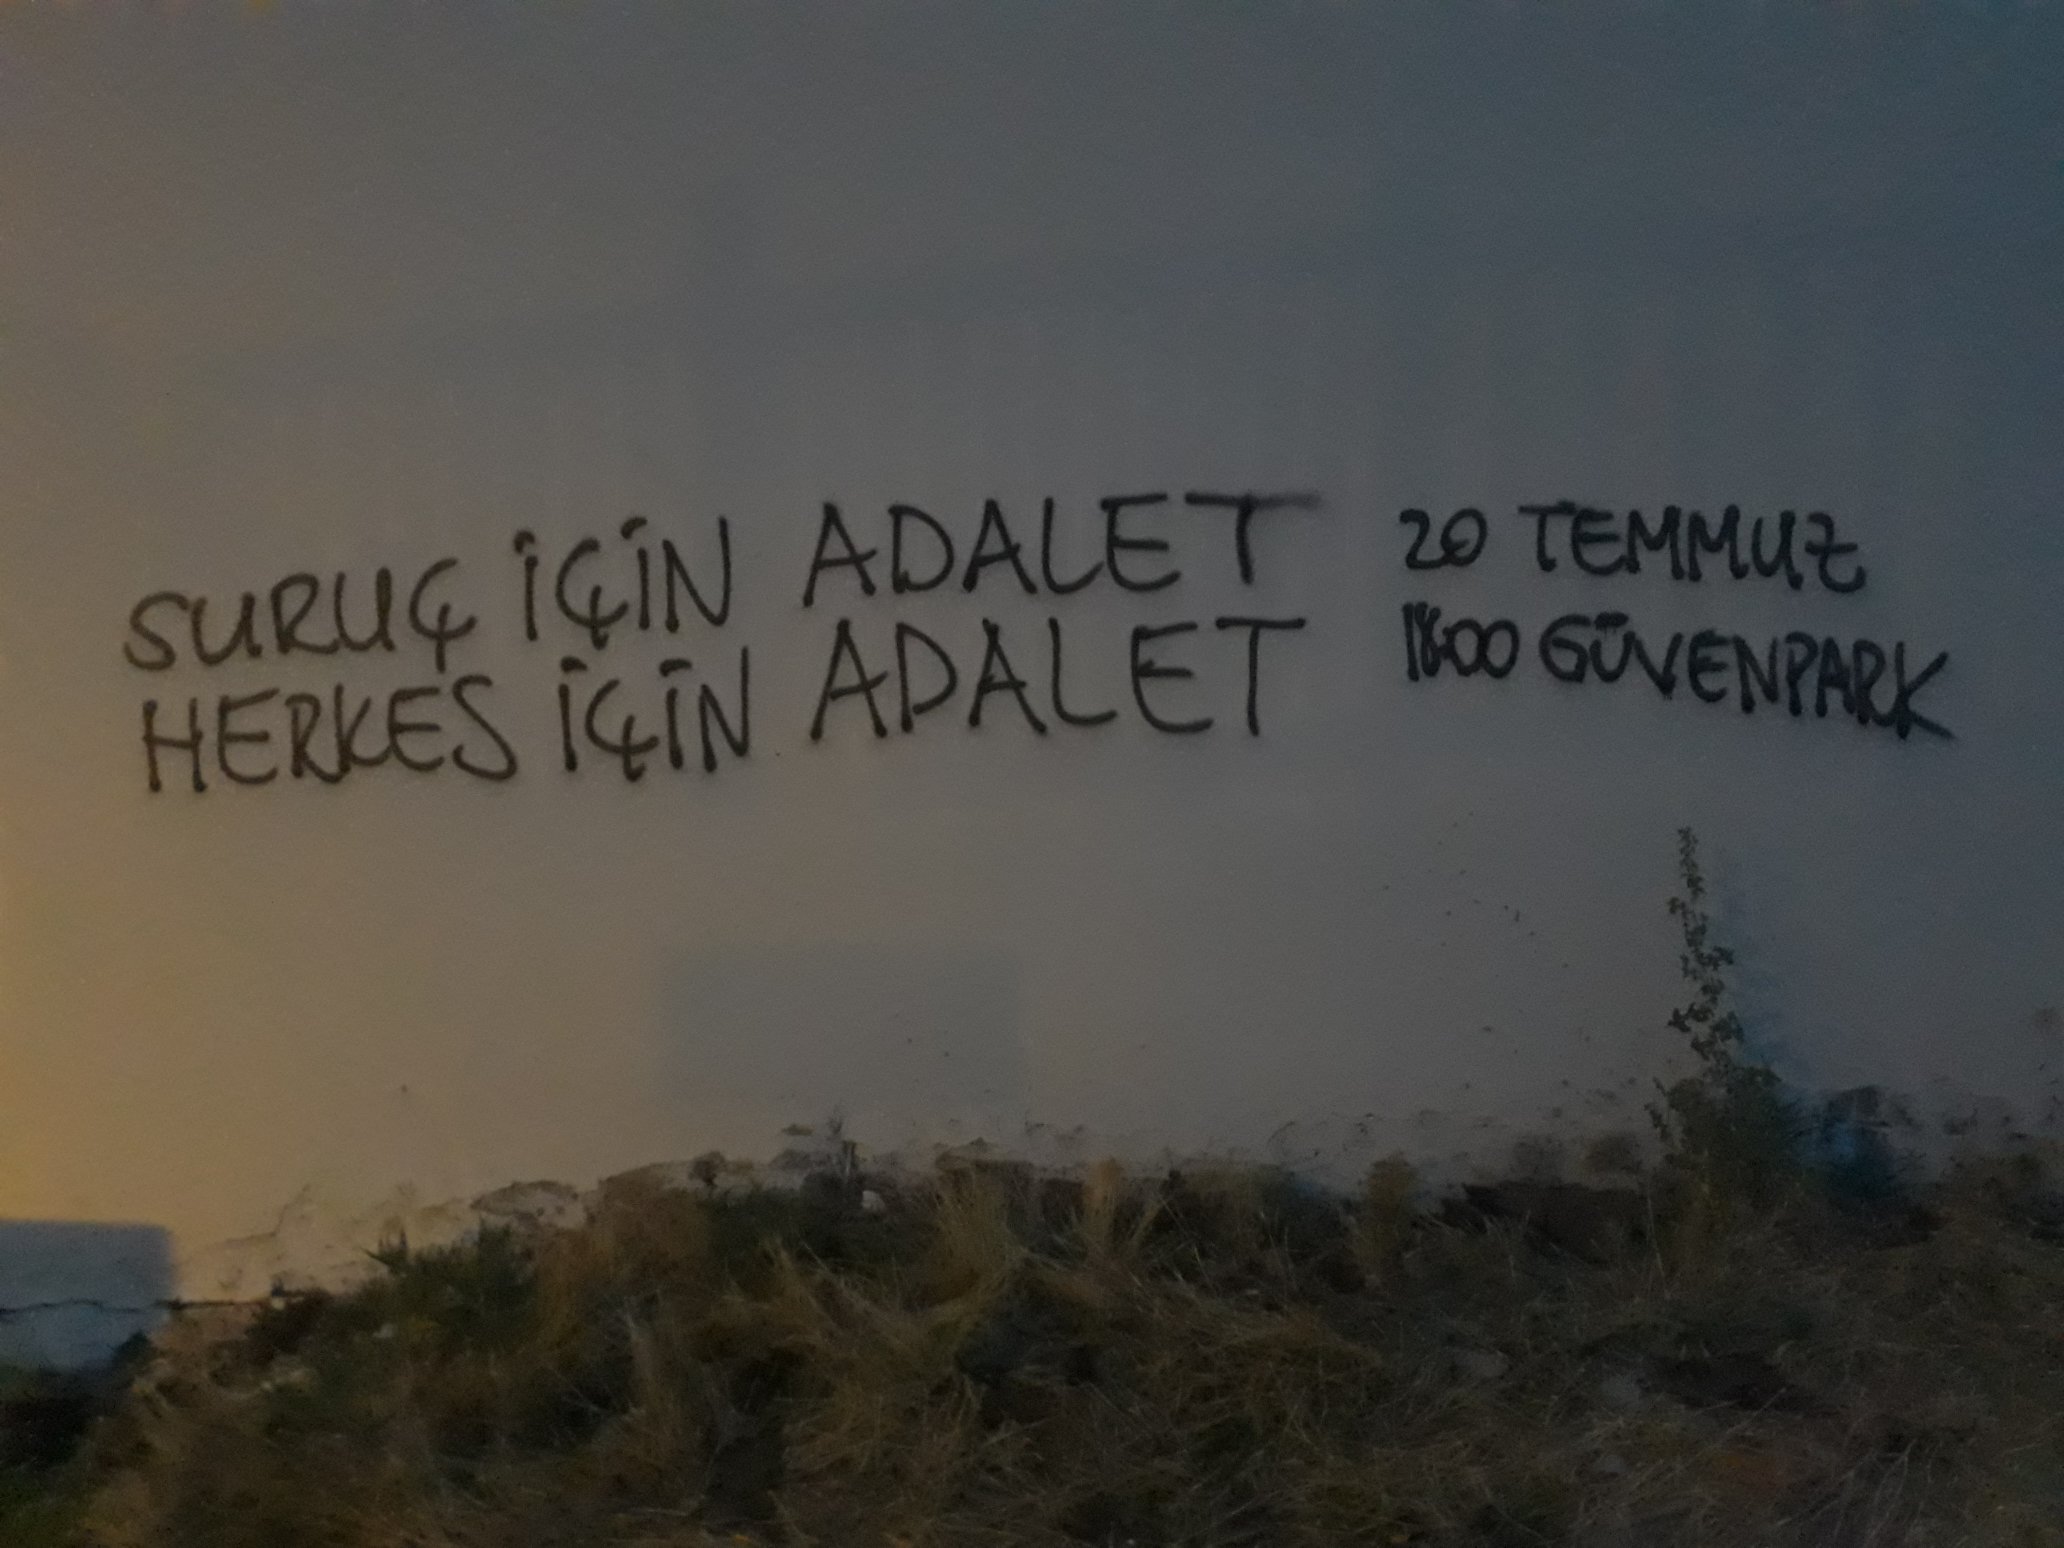 SURUÇ İÇİN ADALET
HERKES İÇİN ADALET
20 TEMMUZ
18:00 GÜVENPARK